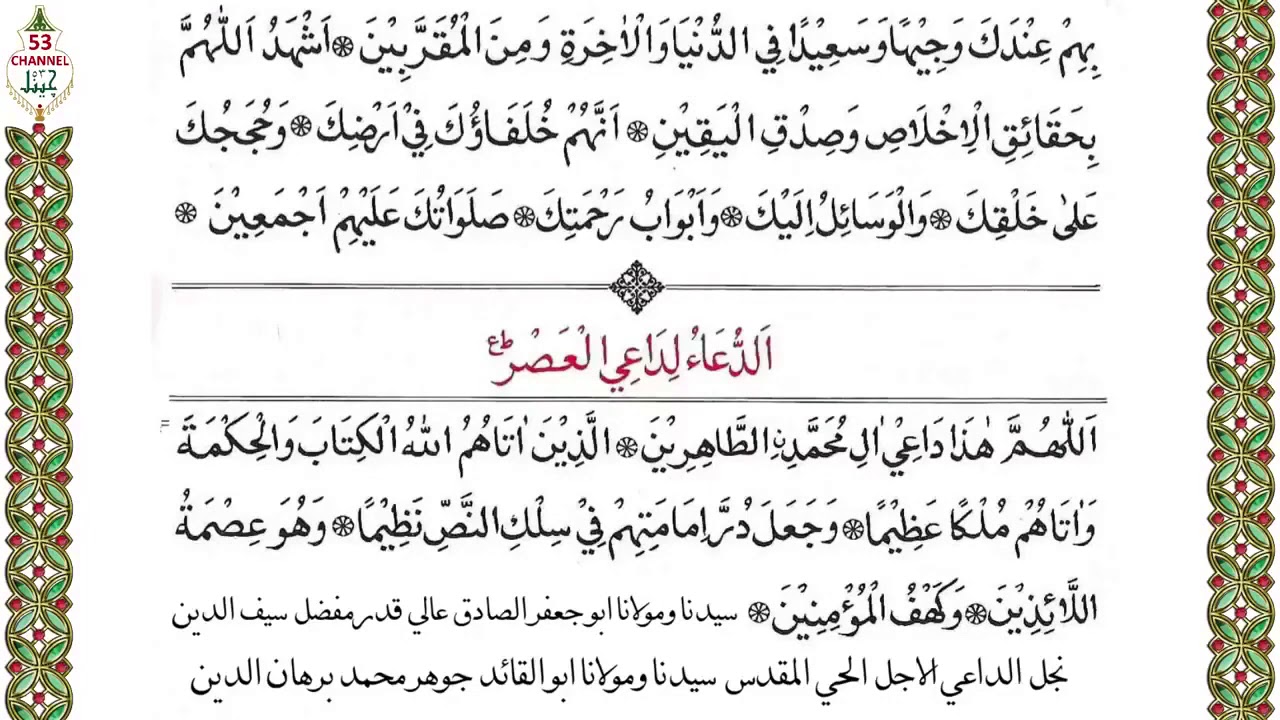 53
CHANNEL
چينل ٥٣
بِهِمْ عِنْدَكَ وَجِيْهًا وَسَعِيْدًا فِي الدُّنْيَا وَالْاٰخِرَةِ وَمِنَ الْمُقَرَّبِيْنَ ۞ اَشْهَدُ اَللّٰهُمَّ
بِحَقَائِقِ الْاِخْلَاصِ وَصِدْقِ الْيَقِيْنِ ۞ اَنَّهُمْ خُلَفَاؤُكَ فِيْ اَرْضِكَ ۞ وَحُجَجُكَ
عَلىٰ خَلْقِكَ ۞ وَالْوَسَائِلُ اِلَيْكَ ۞ وَاَبْوَابُ رَحْمَتِكَ ۞ صَلَوَاتُكَ عَلَيْهِمْ اَجْمَعِيْنَ ۞
اَلدُّعَاءُ لِدَاعِي الْعَصْرِ طع
اَللّٰهُمَّ هٰذَا دَاعِيْ اٰلِ مُحَمَّدِ نِ الطَّاهِرِيْنَ ۞ الَّذِيْنَ اٰتَاهُمُ اللهُ الْكِتَابَ وَالْحِكْمَةَ
وَاٰتَاهُمْ مُلْكًا عَظِيْمًا ۞ وَجَعَلَ دُرَّ اِمَامَتِهِمْ فِيْ سِلْكِ النَّصِّ نَظِيْمًا ۞ وَهُوَ عِصْمَةُ
اللَّائِذِيْنَ ۞ وَكَهْفُ الْمُؤْمِنِيْنَ ۞ سيدنا ومولانا ابو جعفر الصادق عالي قدر مفضل سيف الدين
نجل الداعي الاجل الحي المقدس سيدنا ومولانا ابو القائد جوهر محمد برهان الدين